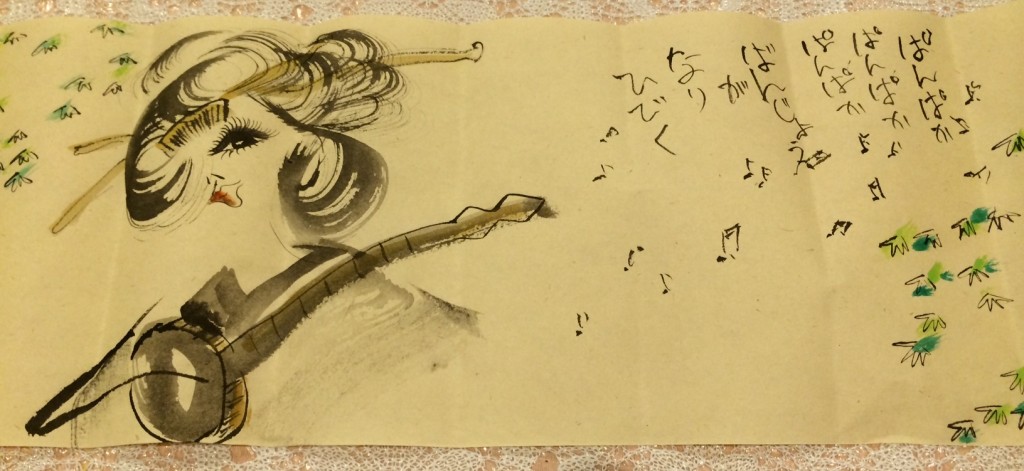 ぱんぱか
ぱんぱか
ぱんぱか
ばんじょえ
が
なり
ひびく